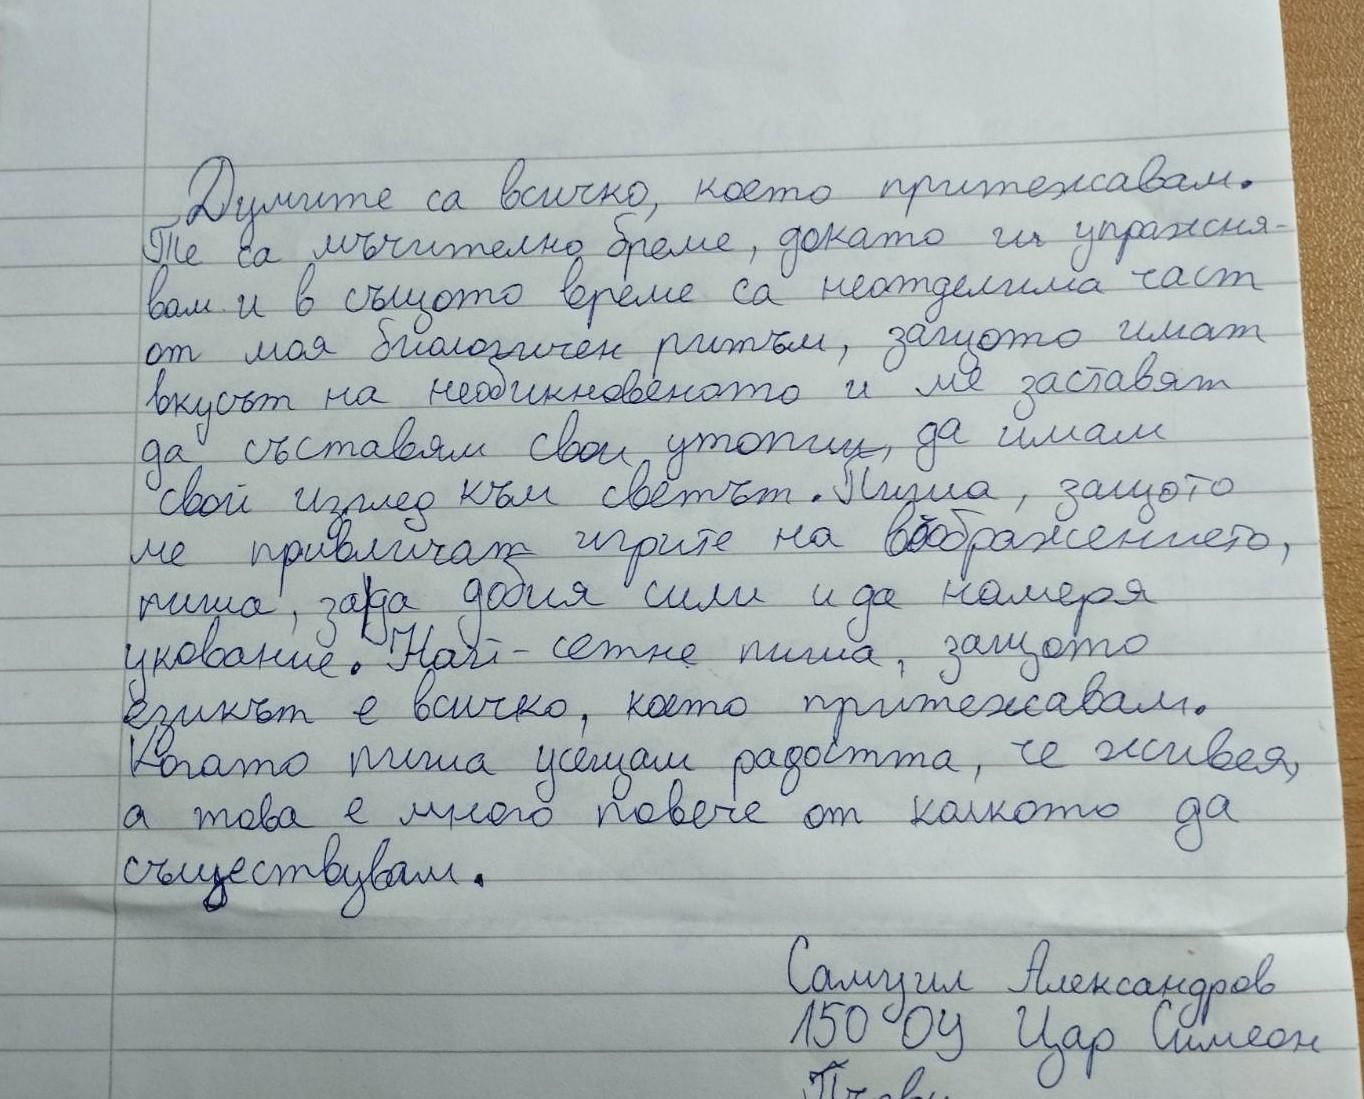 Думите са всичко, което притежавам.
Те са мъчително бреме, докато ги упражня-
вам и в същото време са неотделима част
от моя биологичен ритъм, защото имат
вкусът на необикновеното и ме заставят
да съставям свои утопии, да имам
свой изглед към светът. Пиша, защото
ме привличат игрите на въображението,
пиша, за да добия сили и да намеря
упование. Най-сетне пиша, защото
езикът е всичко, което притежавам.
Когато пиша усещам радостта, че живея,
а това е много повече от колкото да
съществувам.
Самуил Александров
150 ОУ Цар Симеон
Първи